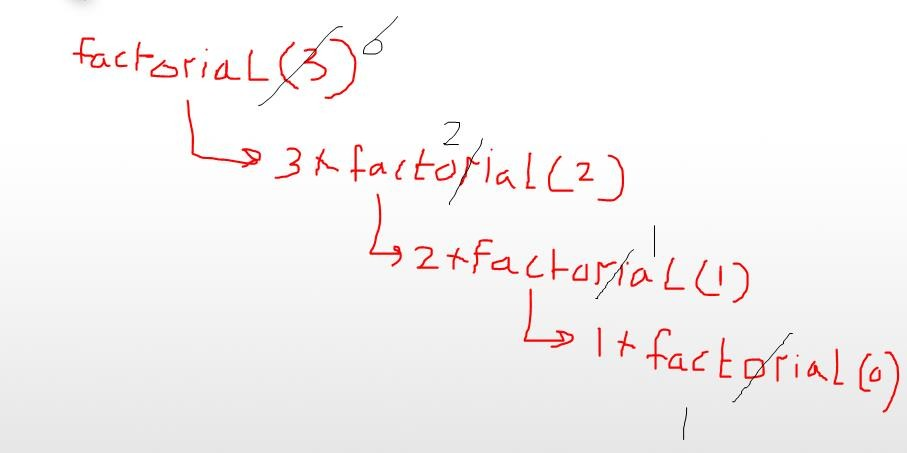 factorial(3) 6
2
3 * factorial(2)
1
2 * factorial(1)
1 * factorial(0)
1